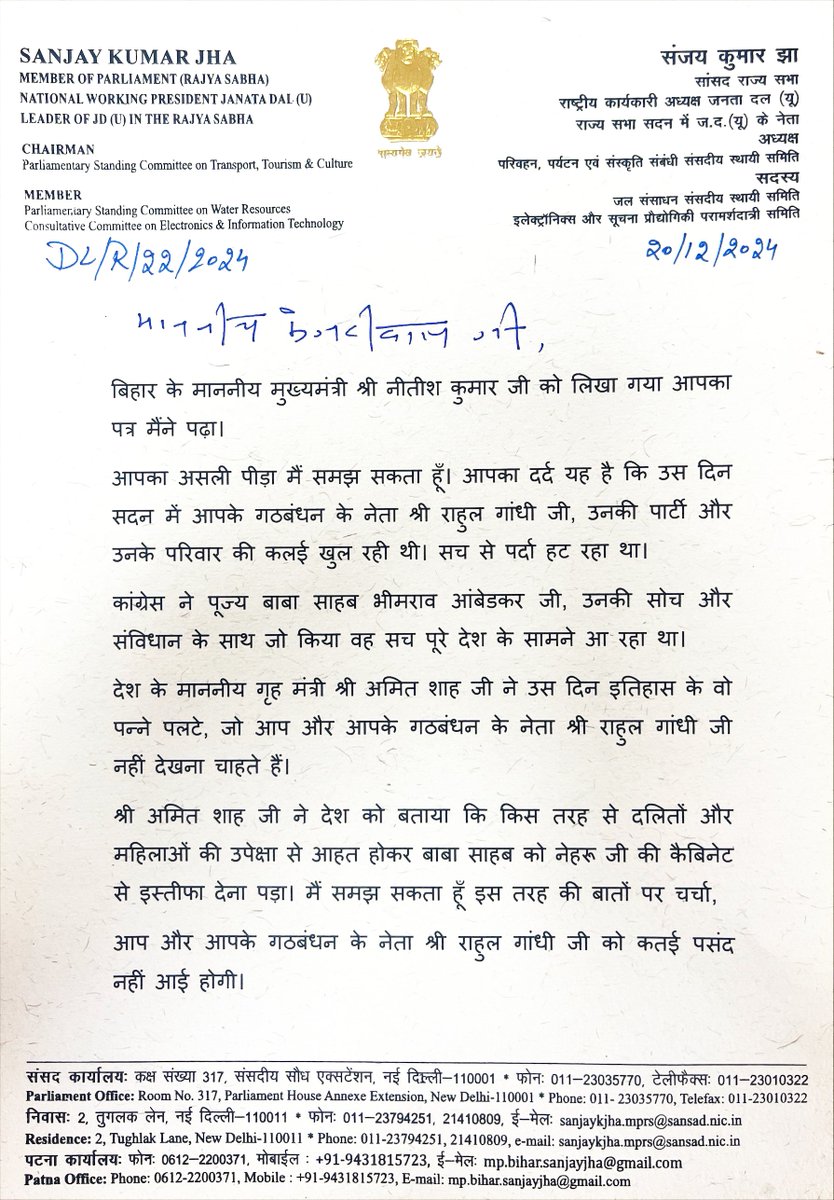 SANJAY KUMAR JHA
MEMBER OF PARLIAMENT (RAJYA SABHA)
NATIONAL WORKING PRESIDENT JANATA DAL (U)
LEADER OF JD (U) IN THE RAJYA SABHA
CHAIRMAN
Parliamentary Standing Committee on Transport, Tourism & Culture
MEMBER
Parliamentary Standing Committee on Water Resources
Consultative Committee on Electronics & Information Technology
सत्यमेव जयते
संजय कुमार झा
सांसद राज्य सभा
राष्ट्रीय कार्यकारी अध्यक्ष जनता दल (यू)
राज्य सभा सदन में ज.द.(यू) के नेता
अध्यक्ष
परिवहन, पर्यटन एवं संस्कृति संबंधी संसदीय स्थायी समिति
सदस्य
जल संसाधन संसदीय स्थायी समिति
इलेक्ट्रॉनिक्स और सूचना प्रौद्योगिकी परामर्शदात्री समिति
DL/R/22/2024
20/12/2024
माननीय केजरीवाल जी,
बिहार के माननीय मुख्यमंत्री श्री नीतीश कुमार जी को लिखा गया आपका
पत्र मैंने पढ़ा।
आपका असली पीड़ा मैं समझ सकता हूँ। आपका दर्द यह है कि उस दिन
सदन में आपके गठबंधन के नेता श्री राहुल गांधी जी, उनकी पार्टी और
उनके परिवार की कलई खुल रही थी। सच से पर्दा हट रहा था।
कांग्रेस ने पूज्य बाबा साहब भीमराव आंबेडकर जी, उनकी सोच और
संविधान के साथ जो किया वह सच पूरे देश के सामने आ रहा था।
देश के माननीय गृह मंत्री श्री अमित शाह जी ने उस दिन इतिहास के वो
पन्ने पलटे, जो आप और आपके गठबंधन के नेता श्री राहुल गांधी जी
नहीं देखना चाहते हैं।
श्री अमित शाह जी ने देश को बताया कि किस तरह से दलितों और
महिलाओं की उपेक्षा से आहत होकर बाबा साहब को नेहरू जी की कैबिनेट
से इस्तीफा देना पड़ा। मैं समझ सकता हूँ इस तरह की बातों पर चर्चा,
आप और आपके गठबंधन के नेता श्री राहुल गांधी जी को कतई पसंद
नहीं आई होगी।
संसद कार्यालयः कक्ष संख्या 317, संसदीय सौध एक्सटेंशन, नई दिल्ली-110001 * फोनः 011-23035770, टेलीफैक्सः 011-23010322
Parliament Office: Room No. 317, Parliament House Annexe Extension, New Delhi-110001 * Phone: 011- 23035770, Telefax: 011-23010322
निवासः 2, तुगलक लेन, नई दिल्ली-110011 * फोनः 011-23794251, 21410809, ई-मेलः sanjaykjha.mprs@sansad.nic.in
Residence: 2, Tughlak Lane, New Delhi-110011 * Phone: 011-23794251, 21410809, e-mail: sanjaykjha.mprs@sansad.nic.in
पटना कार्यालयः फोनः 0612-2200371, मोबाईल : +91-9431815723, ई-मेलः mp.bihar.sanjayjha@gmail.com
Patna Office: Phone: 0612-2200371, Mobile : +91-9431815723, E-mail: mp.bihar.sanjayjha@gmail.com